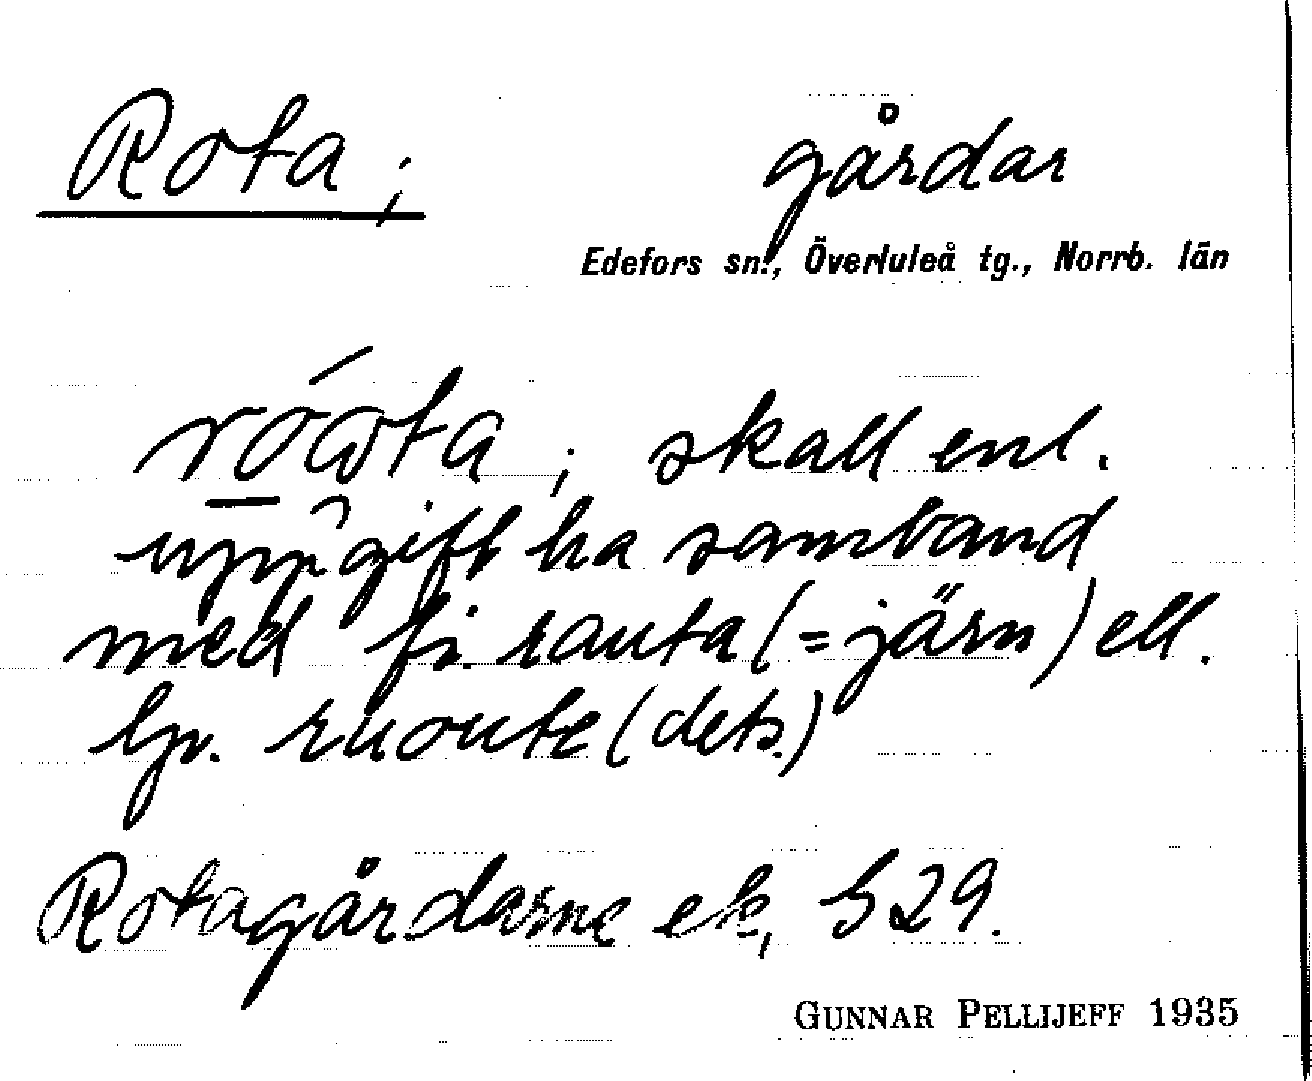 Rota; gårdar
Edefors sn., Överluleå tg., Norrb. län
skall enl.
uppgift ha samband
med fi. rauta (= järn) ell.
lp. ruoute (dets.)
Rotagårdarne ek, S 29.
GUNNAR PELLIJEFF 1935